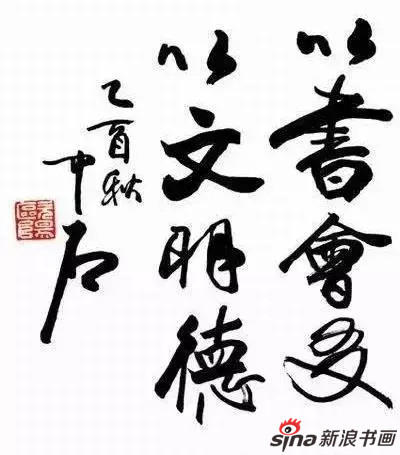 以書會友
以文明德
乙酉秋
中石
sina新浪书画